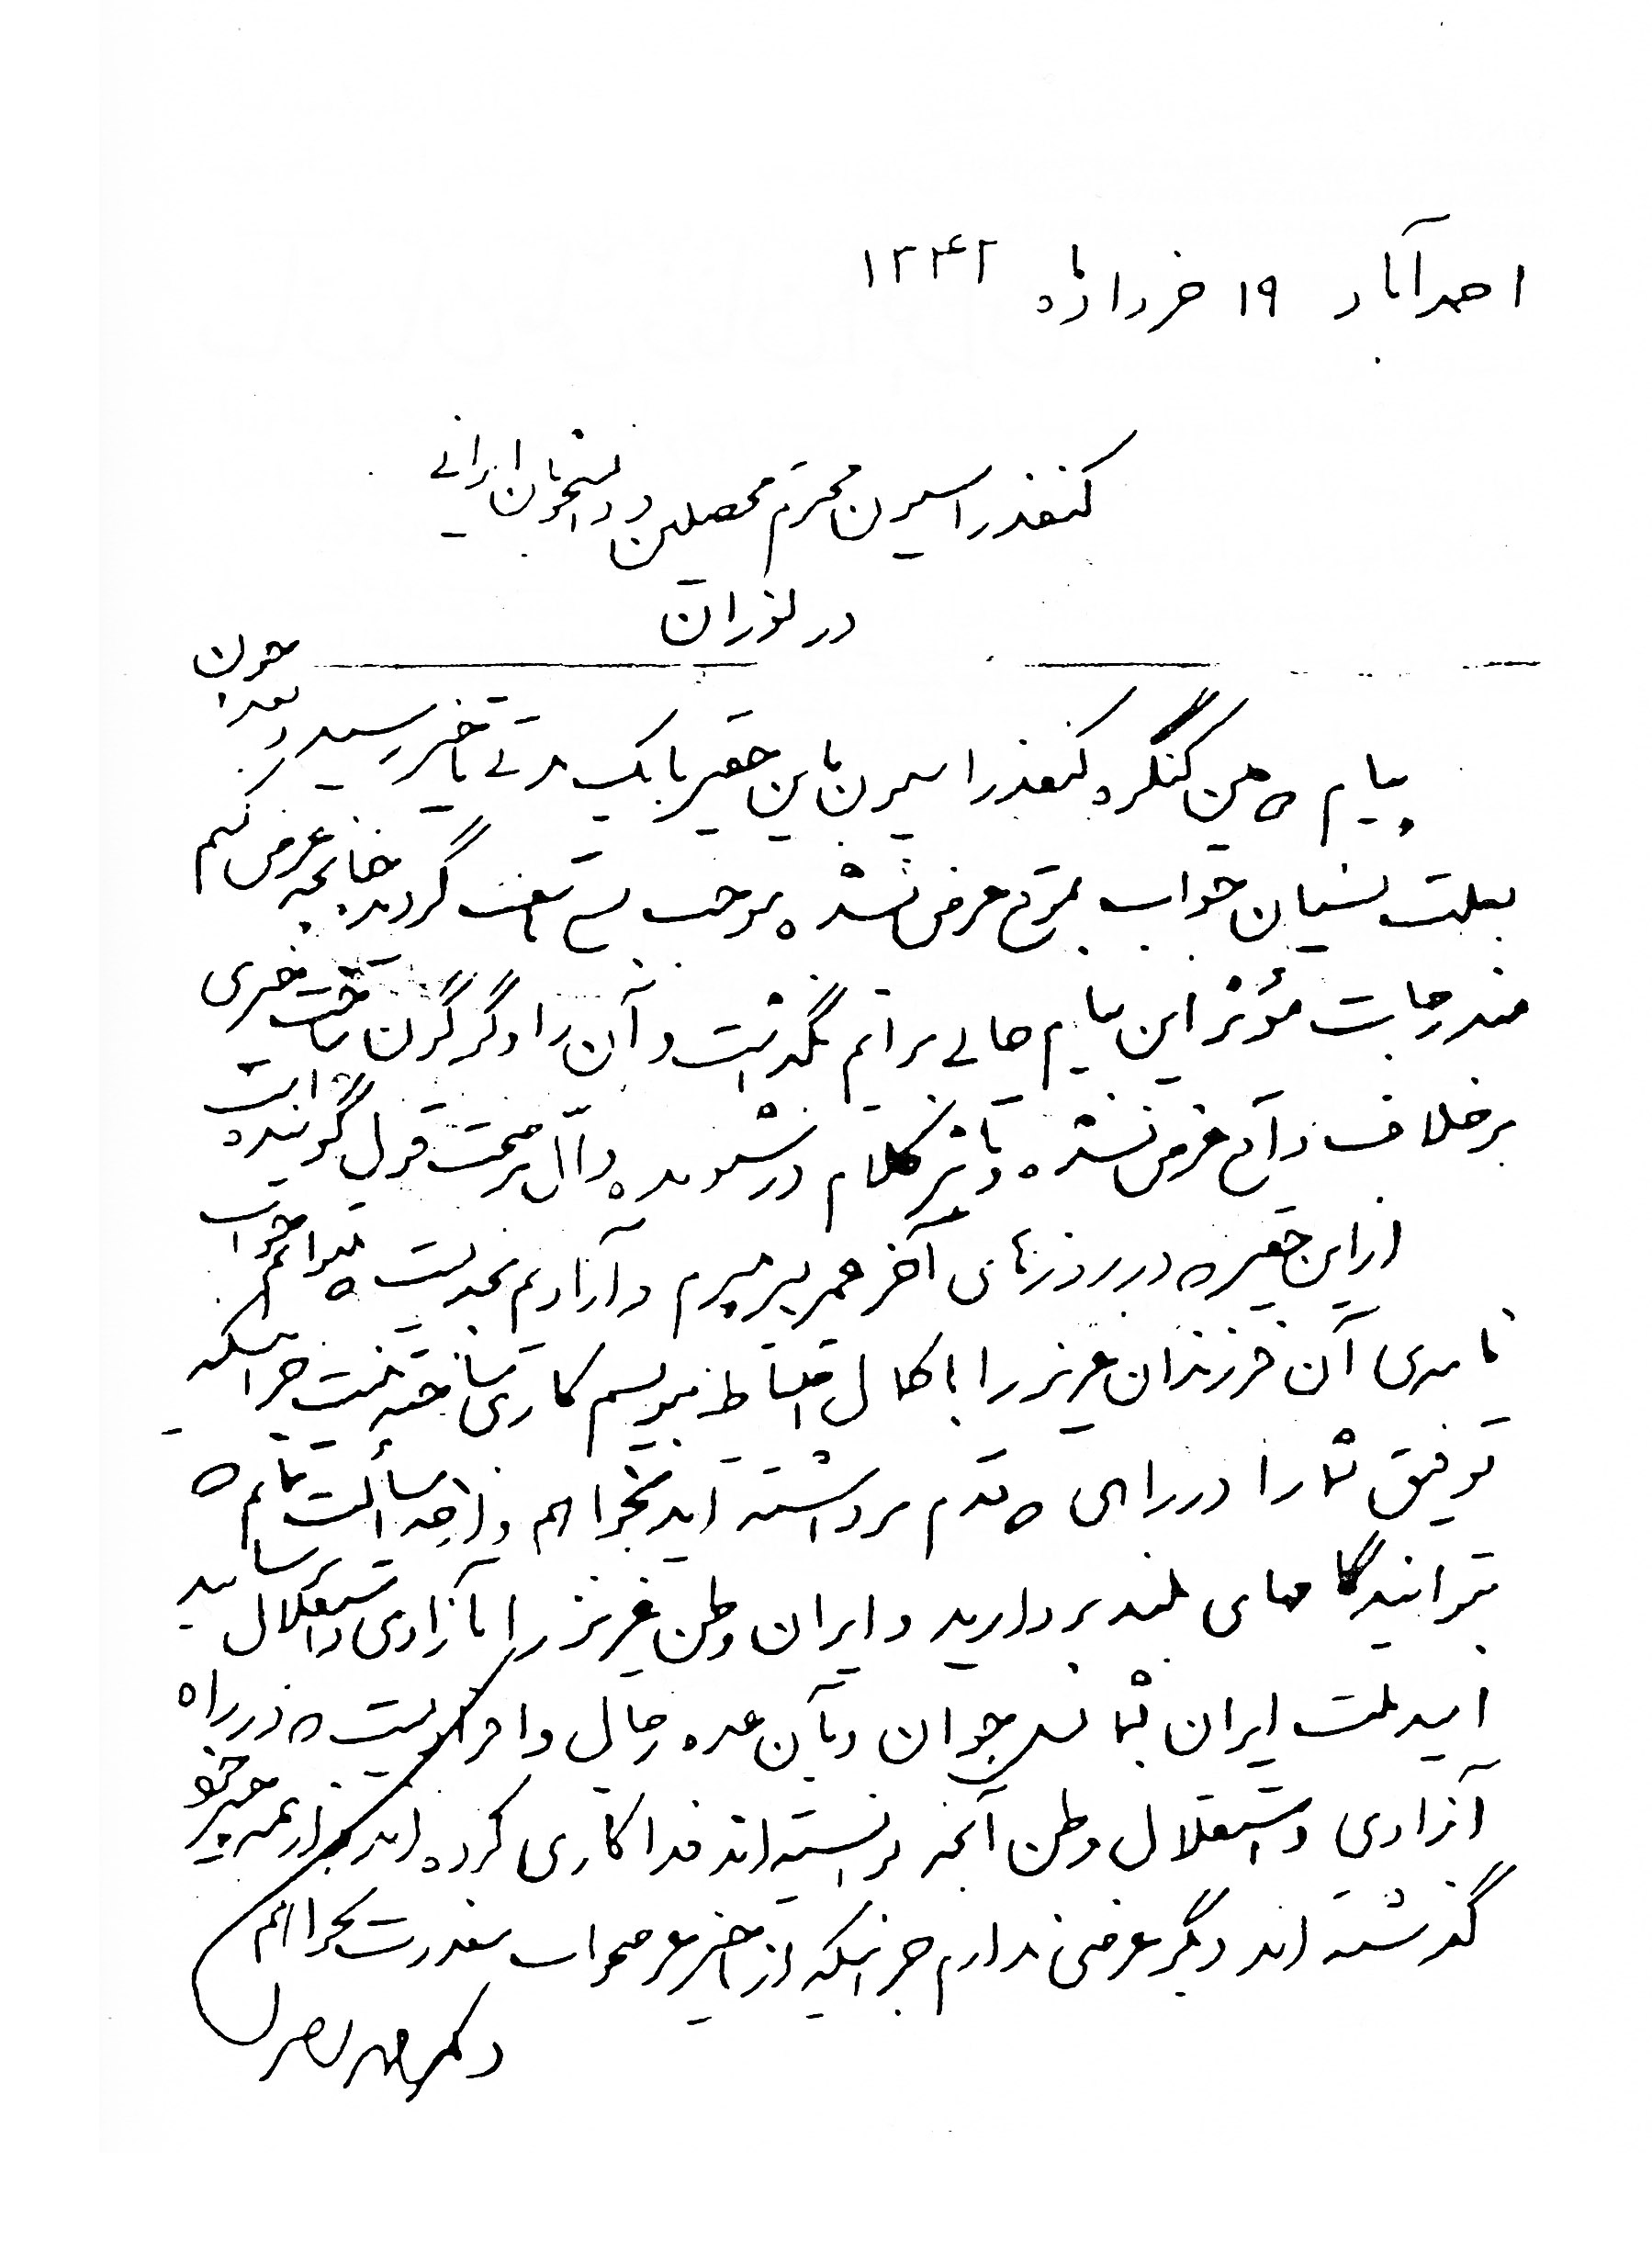 احمدآباد ۱۹ خردادماه ۱۳۴۲
کنفدراسیون محترم محصلین و دانشجویان ایرانی
در لوزان
پیام دومین کنگره کنفدراسیون باین حقیر با یک مدتی تأخیر رسید و بعد چون
بعلت نسیان جواب بموقع عرض نشده موجب بسی تأسف گردید چنانچه عرض کنم
مندرجات مؤثر این پیام حالی برایم نگذاشت و آن را دگرگون ساخت چیزی
برخلاف واقع عرض نشده و تأثیر کلام در شنونده دال بر صحت قول گوینده است
از این حقیر که در روزهای آخر عمر بسر میبرم و آزاد نیم بخوبیت که بتوانم جواب
نامه‌ی آن فرزندان عزیز را با کمال انبساط بنویسم کاری ساخته نیست جز اینکه
توفیق شما را در راهی که قدم برداشته اید بخواهم و از خدا مسألت نمایم که
بتوانید گامهای بلند بردارید و ایران وطن عزیز را بآزادی و استقلال برسانید
امید ملت ایران بشما نسل جوان و بآن عده رجال و افرادیست که در راه
آزادی و استقلال وطن آنچه توانسته اند فداکاری کرده اند و از همه چیز خود
گذشته اند دیگر عرضی ندارم جز اینکه از تأخیر عرض جواب معذرت بخواهم
دکتر محمد مصدق